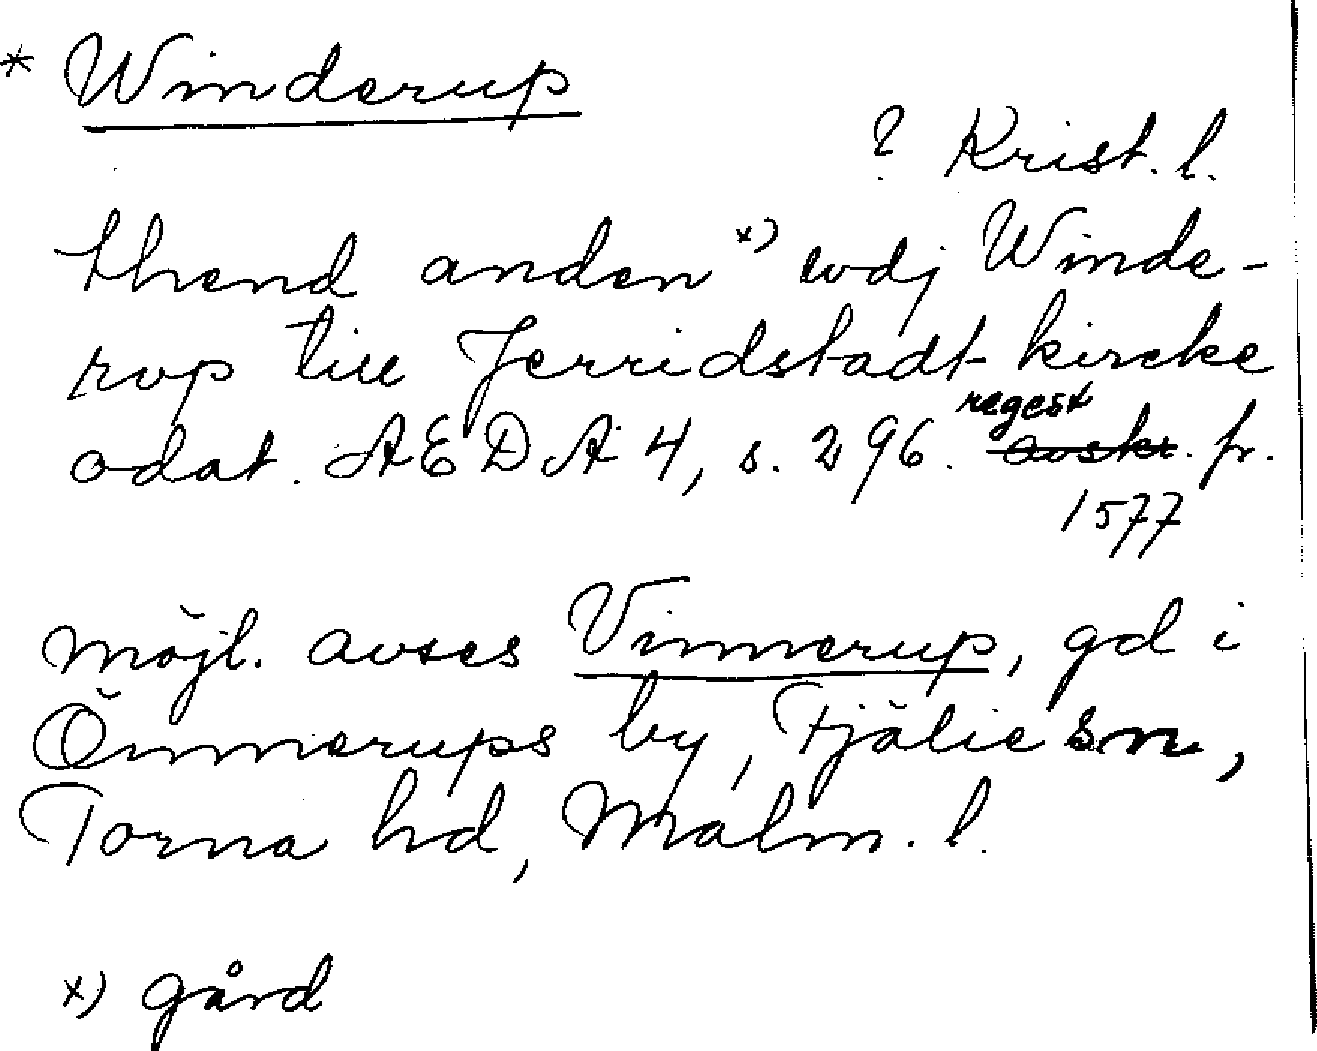 * Winderup
? Krist. l.
thend anden x) wdj Winde-
rvp till Jerridstadt kircke
odat. AEDA 4, s. 296. regest ~~avskr~~. fr.
1577
möjl. avses Vinnerup, gd i
Önnerups by, Fjälie sn,
Torna hd, Malm. l.
x) gård